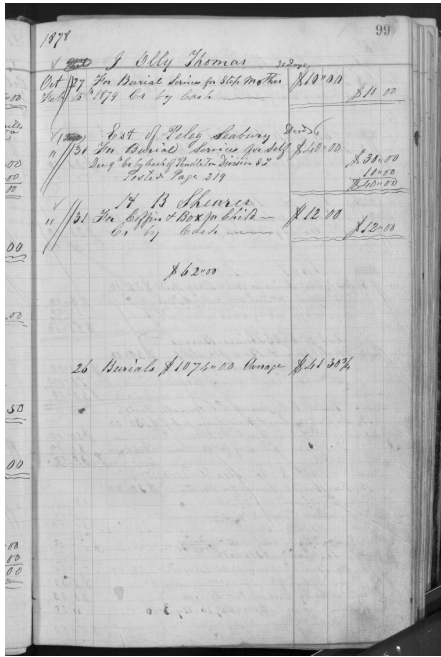 99
1878
J Olly Thomas 30 Days
Oct 27 For Burial Servises for Step Mother $10"00
Feb 15th 1879 Cr by Cash $10 00
Est of Peleg Seabury Decd
" 31 For Burial Servises for Self $40"00
Dec 9th Cr by Cash of Pendleton Division S T $30"00
Posted Page 219 10"00
$40"00
H B Shearer
" 31 For Coffin & Box for Child $12 00
Cr by Cash $12"00
$62"00
26 Burials $1074"00 Average $41 30¾